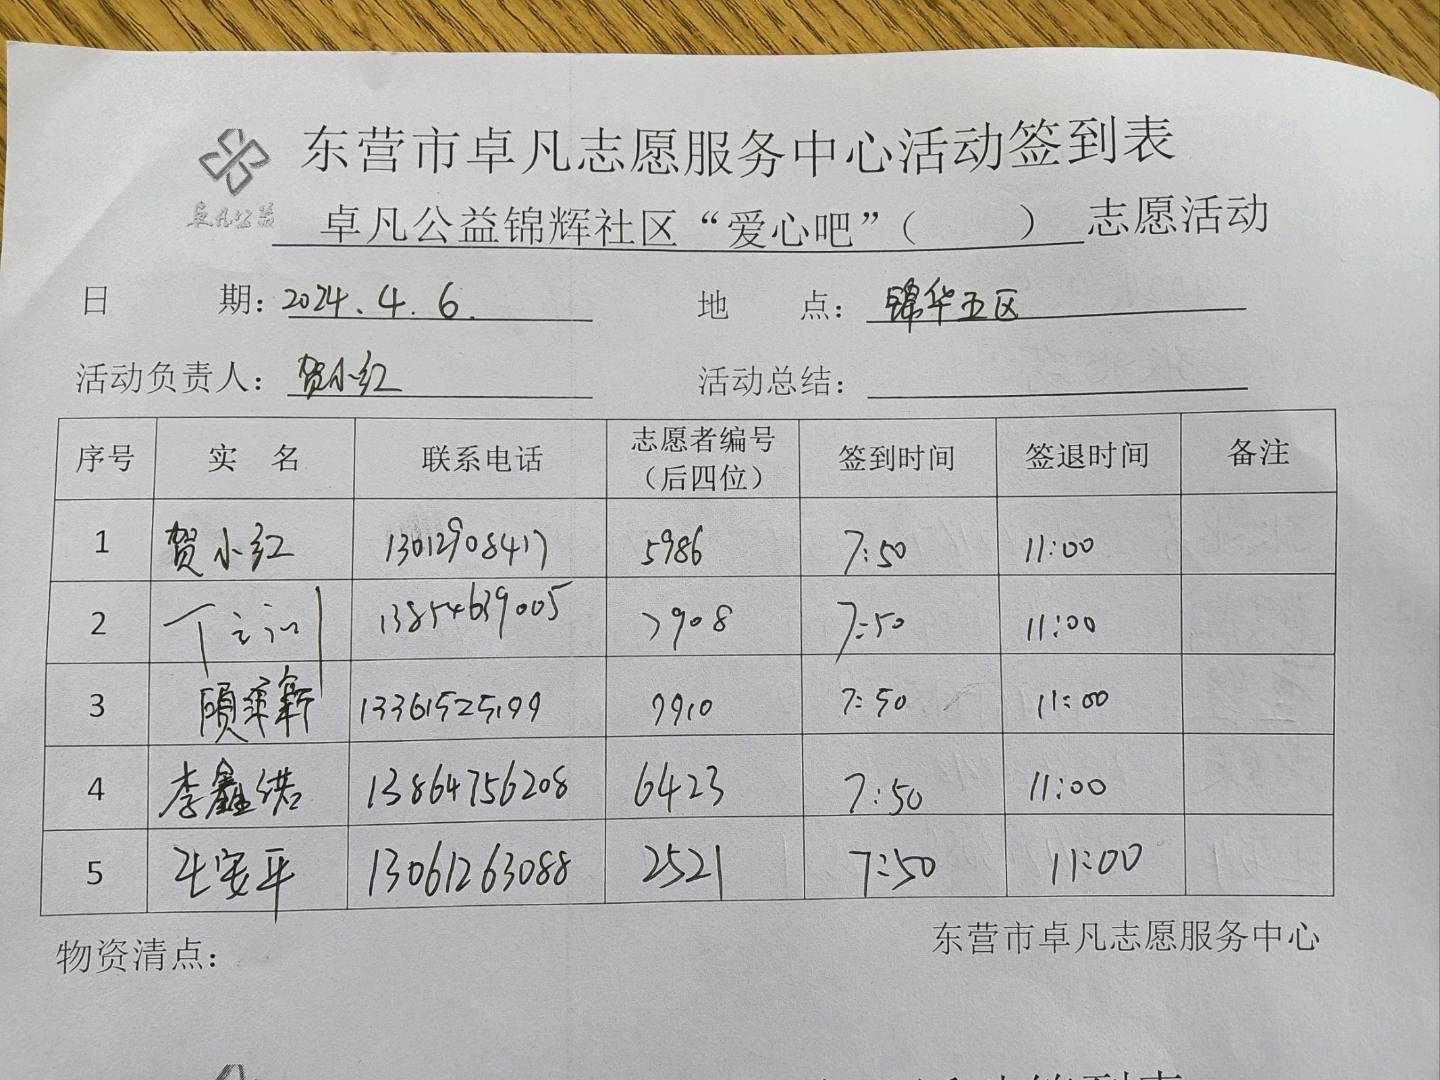 东营市卓凡志愿服务中心活动签到表
卓凡公益
卓凡公益锦辉社区“爱心吧”（ ）志愿活动
日 期：2024.4.6. 地 点：锦华五区
活动负责人：贺小红 活动总结：
序号 实 名 联系电话 志愿者编号（后四位） 签到时间 签退时间 备注
1 贺小红 13012908417 5986 7:50 11:00
2 13854639005 7908 7:50 11:00
3 13361525199 9910 7:50 11:00
4 李鑫 13864756208 6423 7:50 11:00
5 安平 13061263088 2521 7:50 11:00
物资清点： 东营市卓凡志愿服务中心